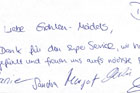 Liebe Mädels,
Danke für den super Service, wir h
gefühlt und freuen uns aufs nächste
Sandra Margot